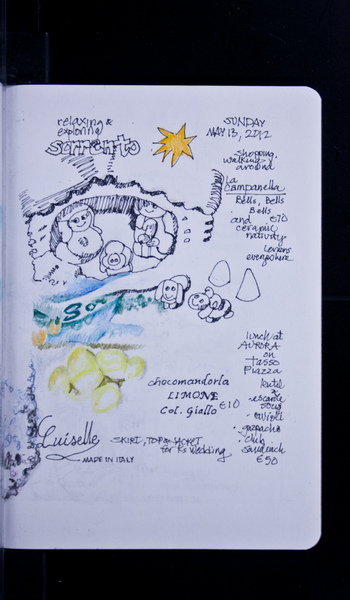 relaxing &
exploring
sorrento
SUNDAY
MAY 13, 2012
shopping,
walking
around
La
Campanella
Bells, Bells
Bells
and €70
ceramic
nativity
Lemons
everywhere
So
lunch at
AURORA
on
Tasso
Piazza
soup
gazpacho
club
sandwich
€50
chocomandorla
LIMONE
Col. Giallo €10
Luiselle
MADE IN ITALY
SKIRT, TOP & JACKET
for K's wedding